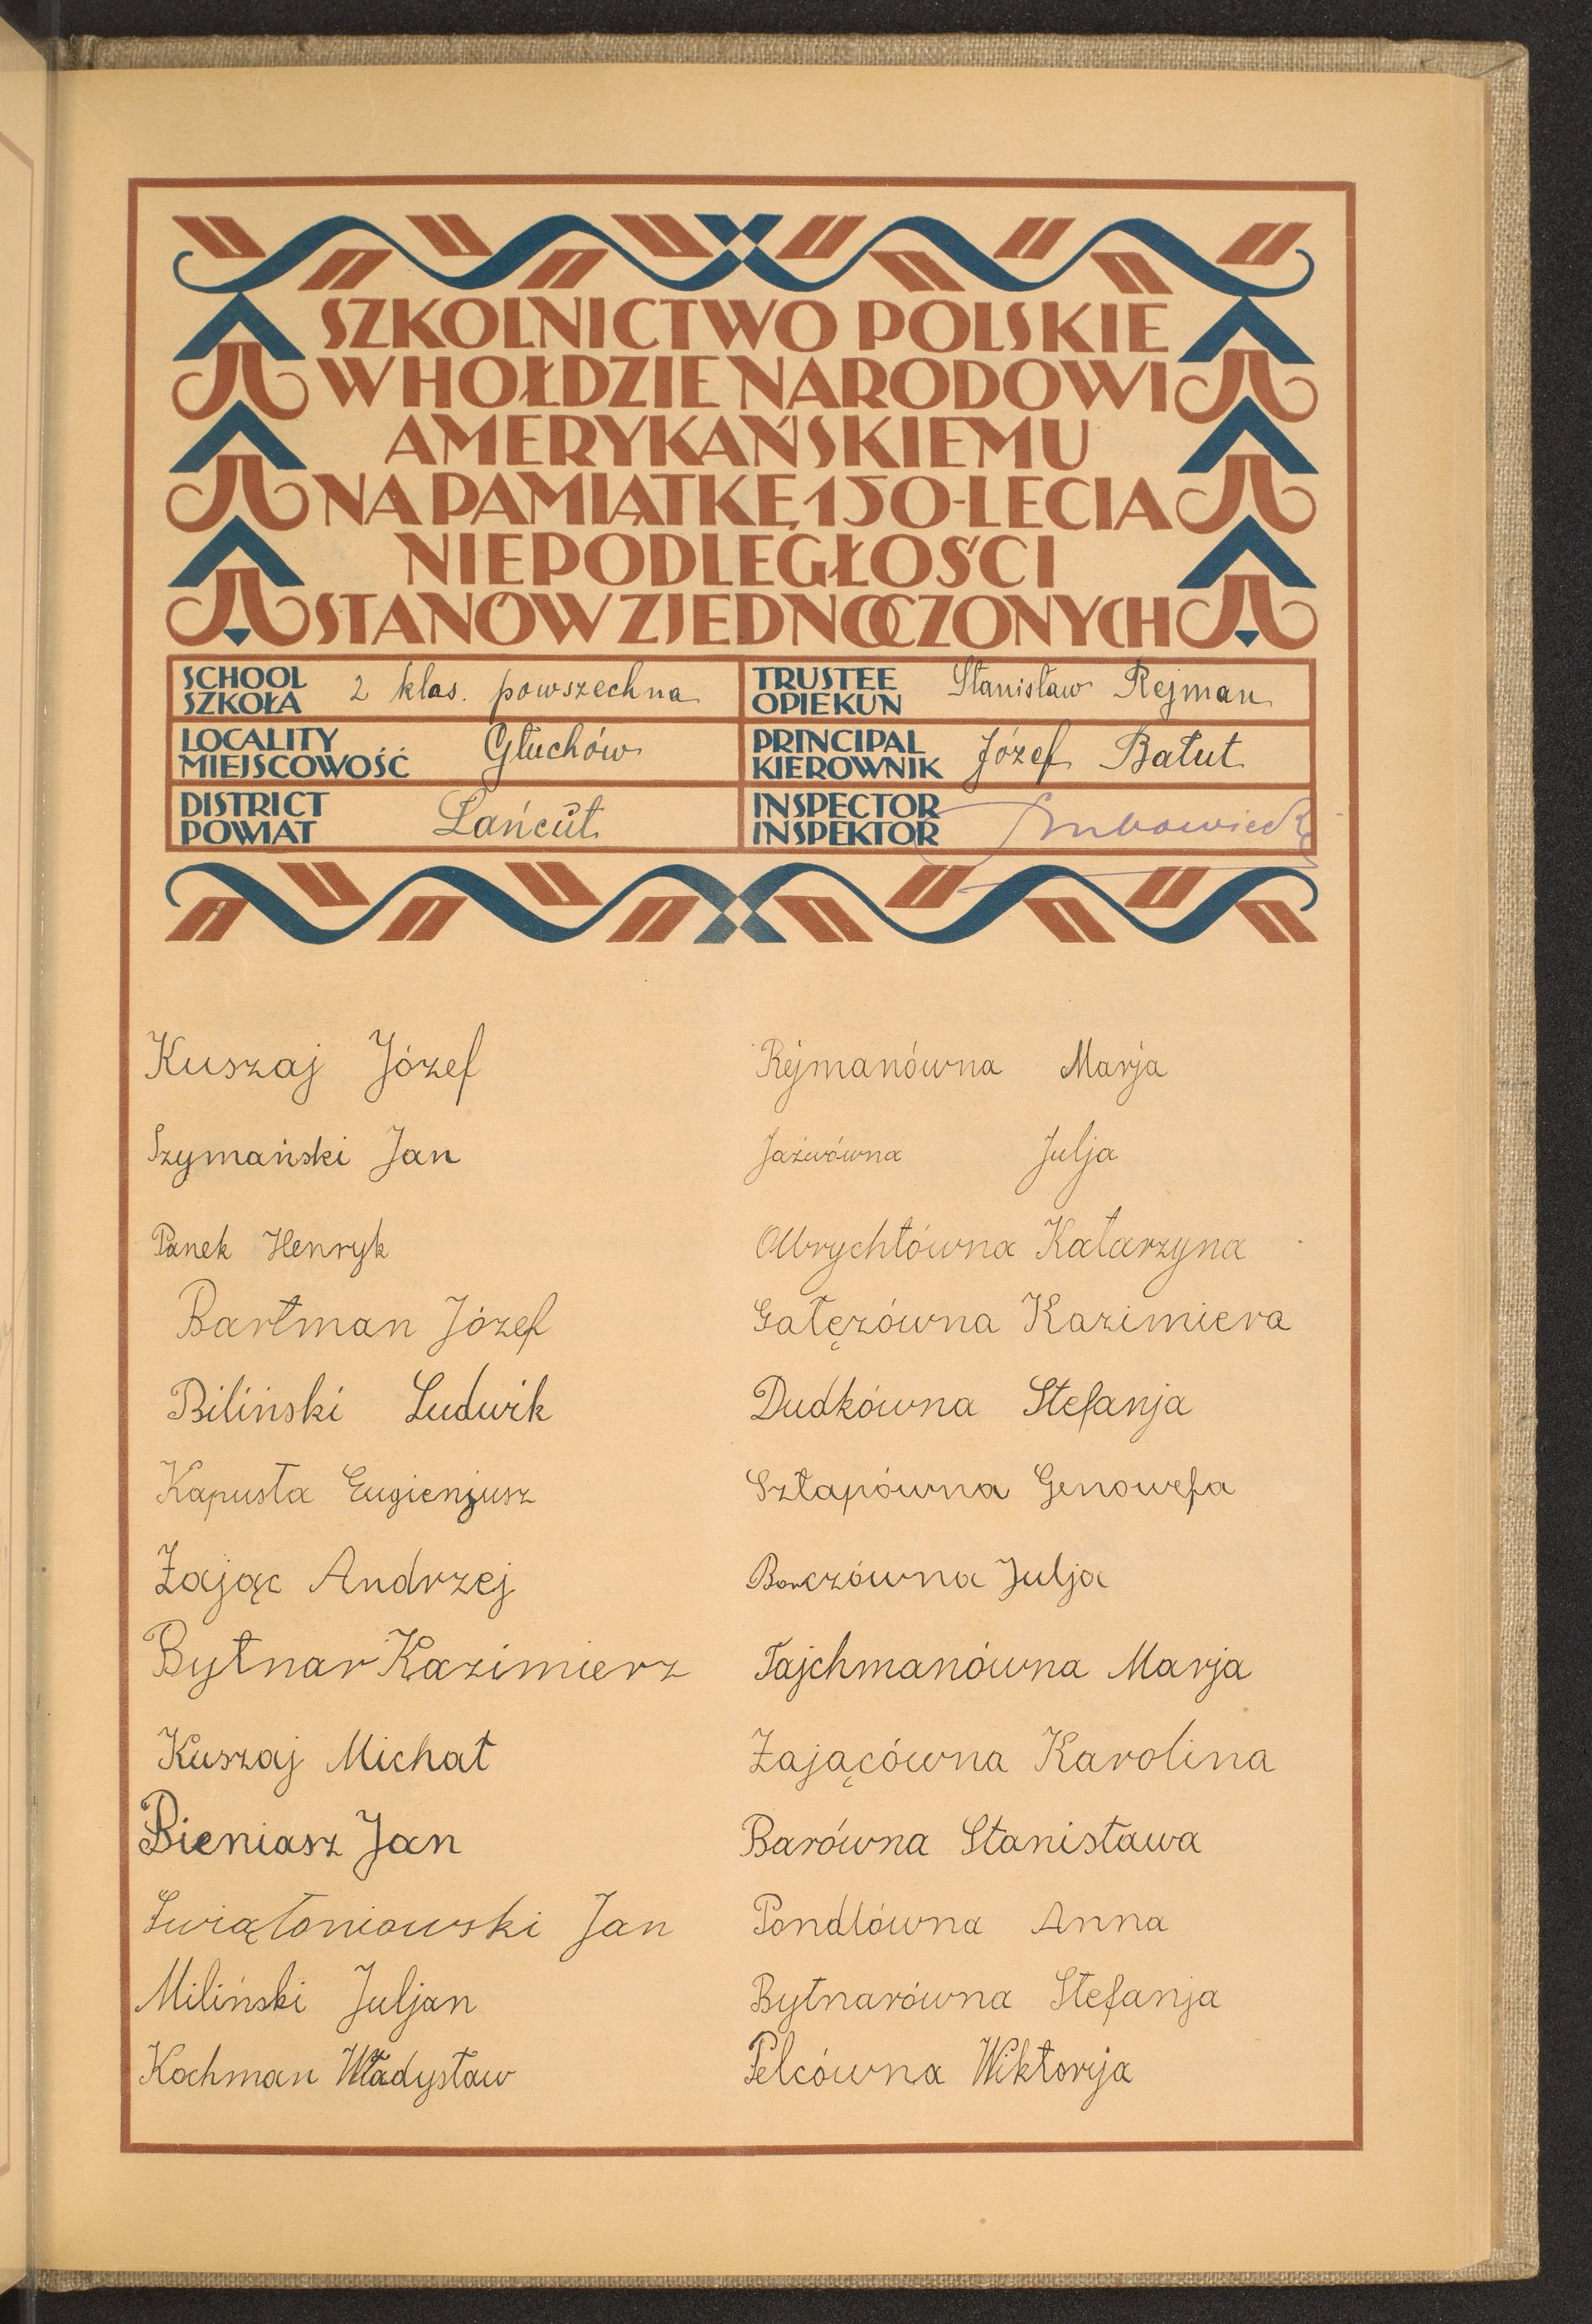 SZKOLNICTWO POLSKIE
W HOŁDZIE NARODOWI
AMERYKAŃSKIEMU
NA PAMIĄTKĘ 150-LECIA
NIEPODLEGŁOŚCI
STANÓW ZJEDNOCZONYCH
SCHOOL
SZKOŁA
2 klas. powszechna
TRUSTEE
OPIEKUN
Stanisław Rejman
LOCALITY
MIEJSCOWOŚĆ
Głuchów
PRINCIPAL
KIEROWNIK
Józef Bałut
DISTRICT
POWIAT
Łańcut
INSPECTOR
INSPEKTOR
Kuszaj Józef
Szymański Jan
Panek Henryk
Bartman Józef
Biliński Ludwik
Kapusta Eugienjusz
Zając Andrzej
Bytnar Kazimierz
Kuszaj Michał
Bieniasz Jan
Świątoniowski Jan
Miliński Juljan
Kochman Władysław
Rejmanówna Marja
Jaźwówna Julja
Olbrychtówna Katarzyna
Gałęzówna Kazimiera
Dudkówna Stefanja
Szłapówna Genowefa
Julja
Tajchmanówna Marja
Zającówna Karolina
Barówna Stanisława
Pondlówna Anna
Bytnarówna Stefanja
Pelcówna Wiktorja